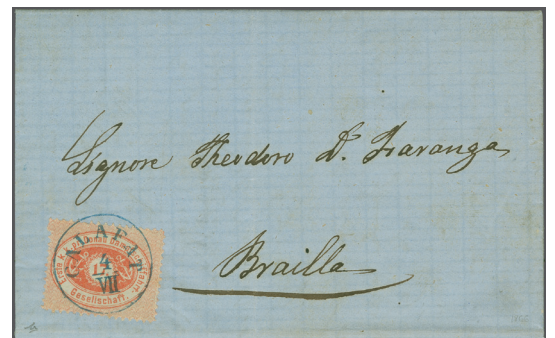 Signore Theodoro D. Xaranga
Brailla
CALAFAT
4
VII
Gesellschaft.